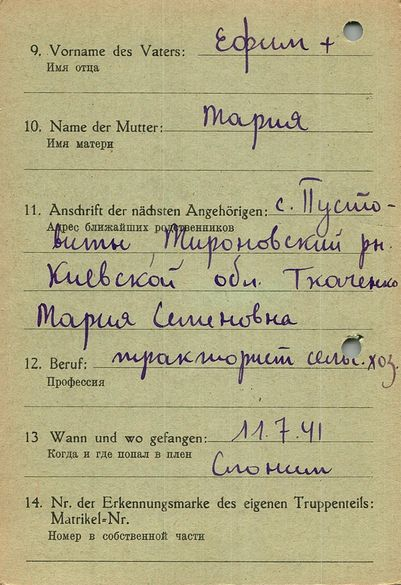 9. Vorname des Vaters: Ефим +
Имя отца
10. Name der Mutter: Мария
Имя матери
11. Anschrift der nächsten Angehörigen: с. Пусто-
Адрес ближайших родственников
виты, Мироновский рн.
Киевской обл. Ткаченко
Мария Семеновна
12. Beruf: тракторист сельс. хоз.
Профессия
13 Wann und wo gefangen: 11.7.41
Когда и где попал в плен
Слоним
14. Nr. der Erkennungsmarke des eigenen Truppenteils:
Matrikel=Nr.
Номер в собственной части